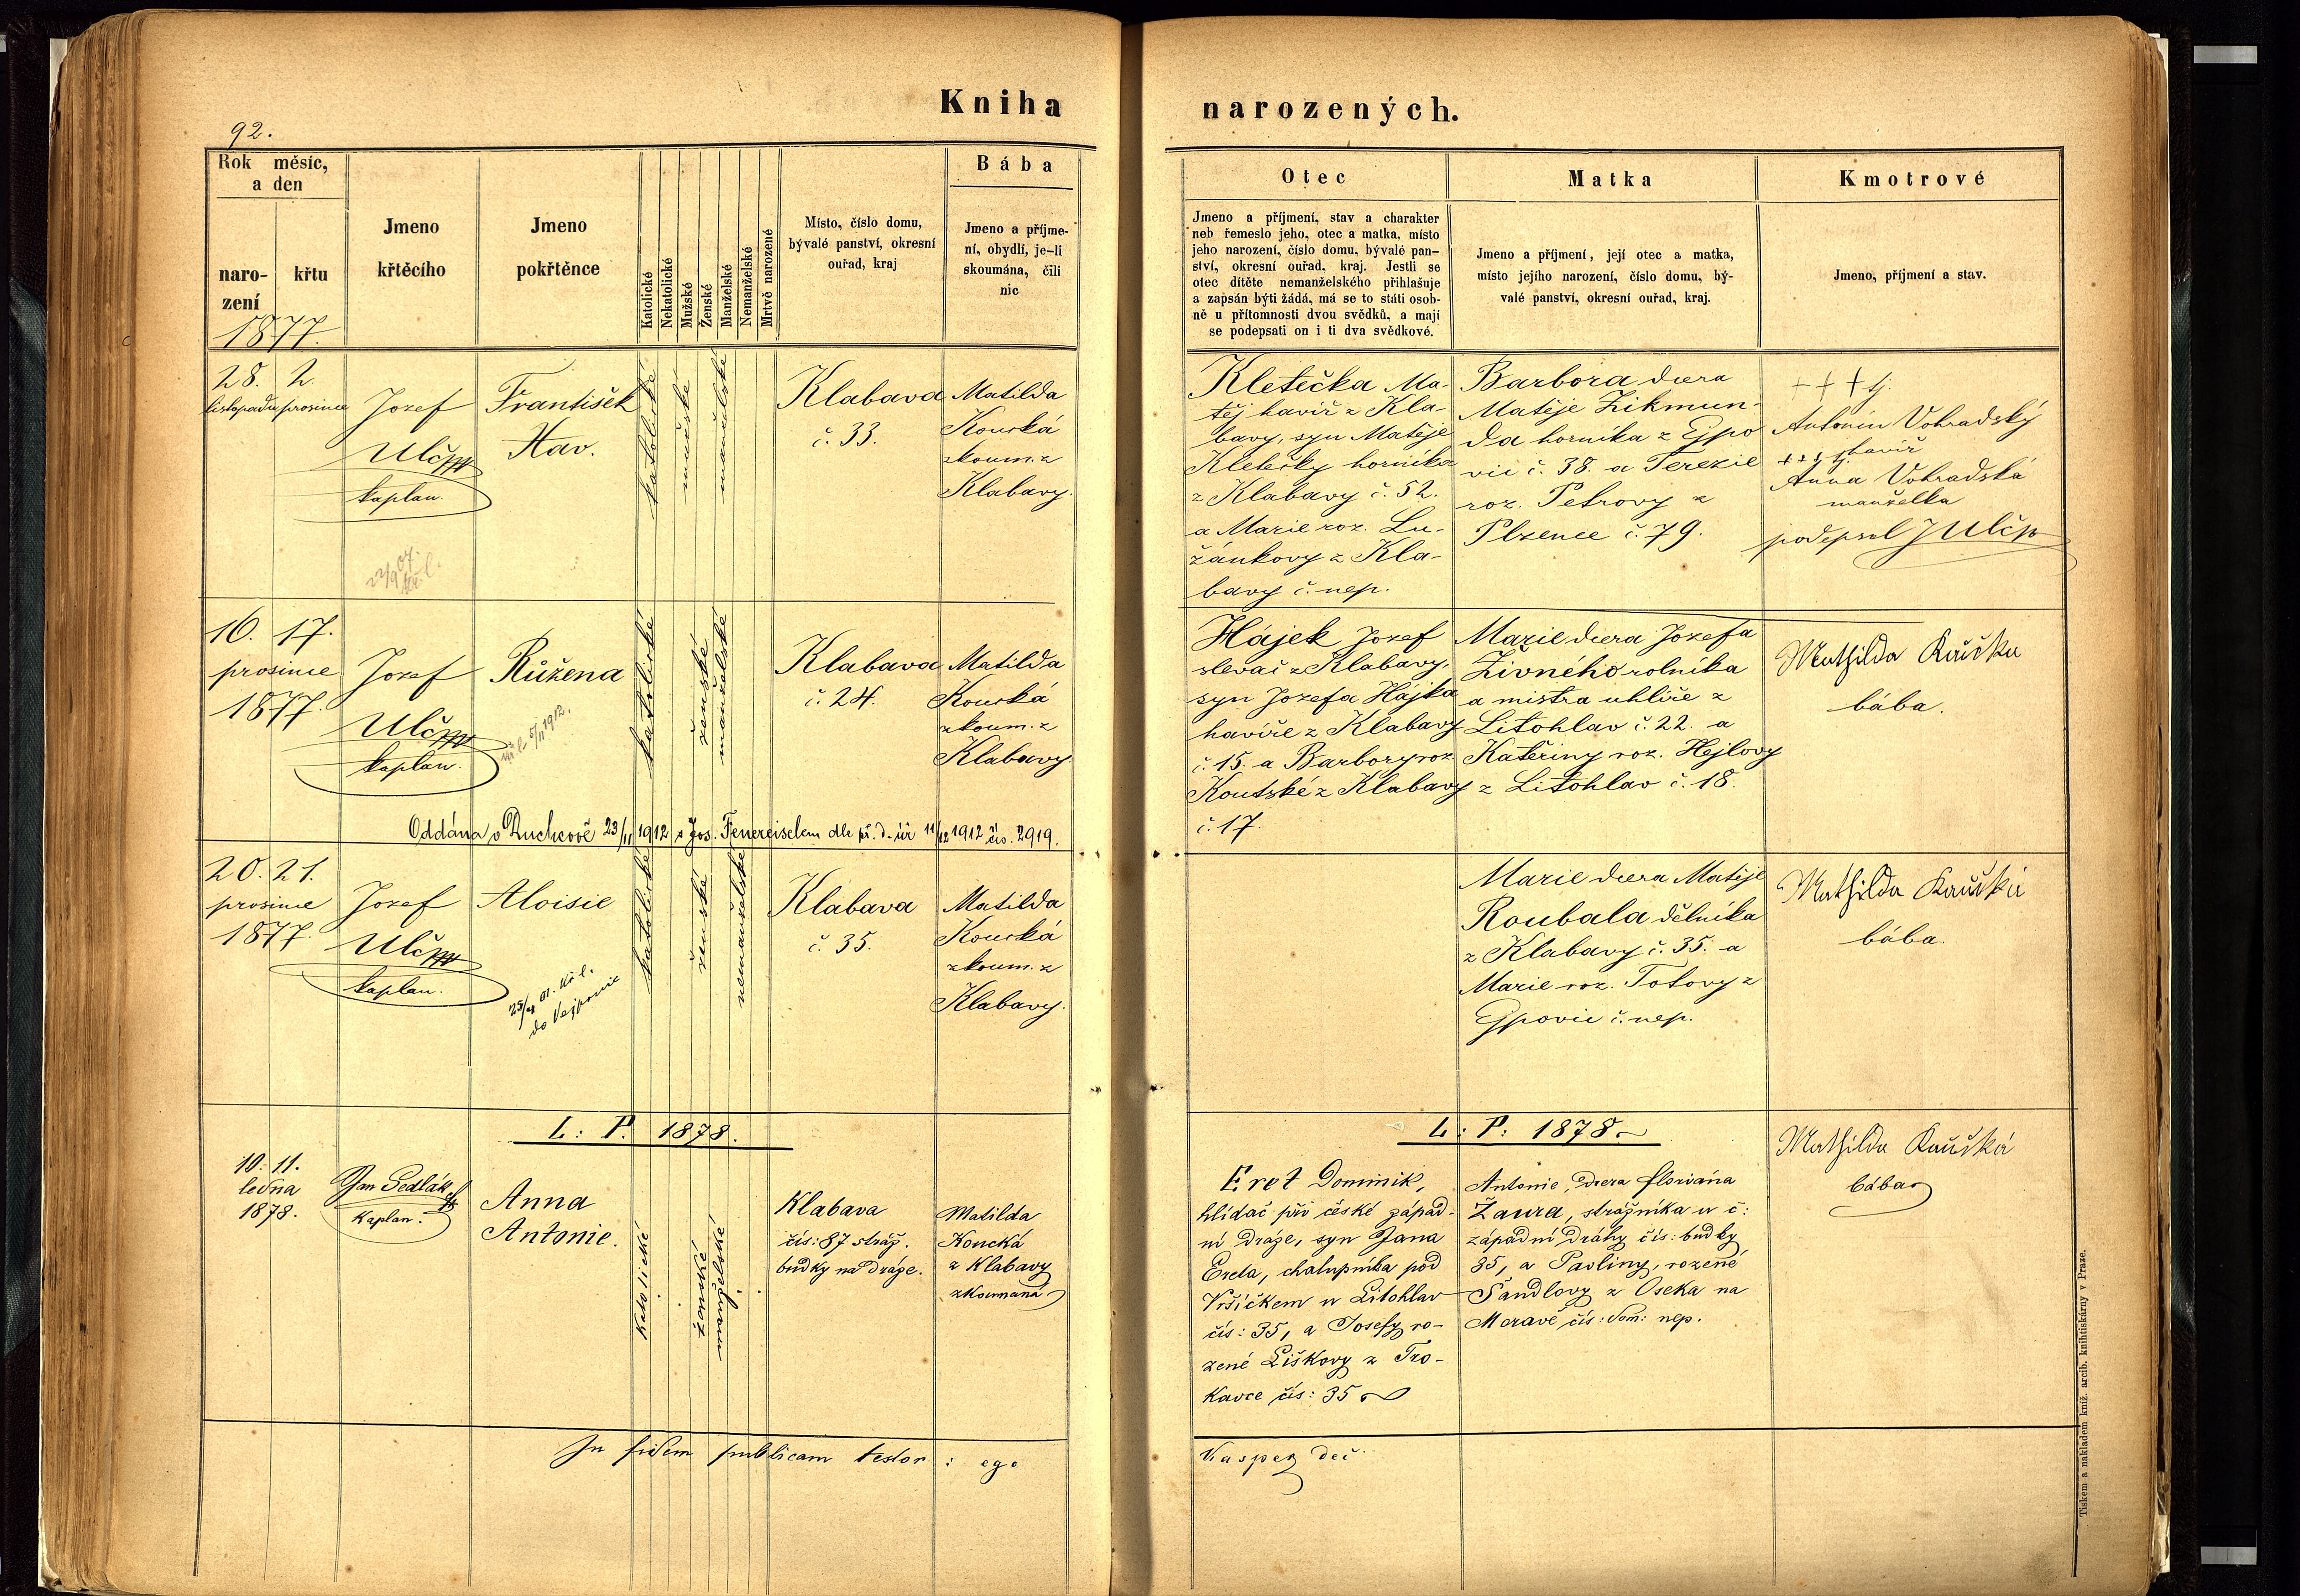 Kniha narozených.
92.
Rok měsíc,
a den
naro-
zení
křtu
Jmeno
křtěcího
Jmeno
pokřtěnce
Katolické
Nekatolické
Mužské
Ženské
Manželské
Nemanželské
Mrtvě narozené
Místo, číslo domu,
bývalé panství, okresní
ouřad, kraj
Bába
Jmeno a příjme-
ní, obydlí, je-li
skoumána, čili
nic
Otec
Jmeno a příjmení, stav a charakter
neb řemeslo jeho, otec a matka, místo
jeho narození, číslo domu, bývalé pan-
ství, okresní ouřad, kraj. Jestli se
otec dítěte nemanželského přihlašuje
a zapsán býti žádá, má se to státi osob-
ně u přítomnosti dvou svědků, a mají
se podepsati on i ti dva svědkové.
Matka
Jmeno a příjmení, její otec a matka,
místo jejího narození, číslo domu, bý-
valé panství, okresní ouřad, kraj.
Kmotrové
Jmeno, příjmení a stav.
1877.
28. 2.
listopadu prosince
Josef
Ulč
kaplan.
František
Xav.
katolické
mužské
manželské
Klabava
č. 33.
Matilda
Koucká
zkoum. z
Klabavy.
Kletečka Ma-
těj havíř z Kla-
bavy, syn Matěje
Kletečky horníka
z Klabavy č. 52.
a Marie roz. Lu-
žánkovy z Kla-
bavy č. nep.
Barbora dcera
Matěje Zikmun-
da horníka z Ejpo
vic č. 38. a Terezie
roz. Petrovy z
Plzence č. 79.
+ + + tj.
Antonín Vohradský
havíř
+ + + tj.
Anna Vohradská
manželka
podepsal J Ulč
16. 17.
prosince
1877.
Josef
Ulč
kaplan.
Růžena
5/11 1912.
katolické
ženské
manželské
Klabava
č. 24.
Matilda
Koucká
zkoum. z
Klabavy
Hájek Josef
slevač z Klabavy,
syn Josefa Hájka
havíře z Klabavy
č. 15. a Barbory roz.
Koutské z Klabavy
č. 17.
Marie dcera Josefa
Živného rolníka
a mistra uhlíře z
Litohlav č. 22. a
Kateřiny roz. Hejlovy
z Litohlav č. 18.
Mathilda Kaucka
bába.
Oddána v Duchcově 23/11 1912 s Jos. Feuereiselem dle př. d. úř 11/12 1912 čís. 2919.
20. 21.
prosince
1877.
Josef
Ulč
kaplan.
Aloisie
do Vejpernic
katolické
ženské
nemanželské
Klabava
č. 35.
Matilda
Koucká
zkoum. z
Klabavy.
Marie dcera Matěje
Roubala dělníka
z Klabavy č. 35. a
Marie roz. Totovy z
Ejpovic č. nep.
Mathilda Kaucká
bába.
L: P. 1878.
L: P: 1878
10. 11.
ledna
1878.
Jan Sedlák
Kaplan.
Anna
Antonie.
katolické
ženské
manželské
Klabava
čís: 87 stráž.
budky na dráze.
Matilda
Koucká
z Klabavy
zkoumaná
Eret Dominik,
hlídač při české západ-
ní dráze, syn Jana
Ereta, chalupníka pod
Vršíčkem u Litohlav
čís: 35, a Josefy ro-
zené Liškovy z Tro-
kavce čís: 35
Antonie, dcera Floriána
Žaura, strážníka u č:
západní dráhy čís: budky
35, a Pavliny, rozené
Šandlovy z Oseka na
Moravě čís: dom: nep.
Mathilda Kaucká
bába
In fidem publicam testor: ego
Kasper děč
Tiskem a nakladem kniž. arcib. knihtiskárny v Praze.